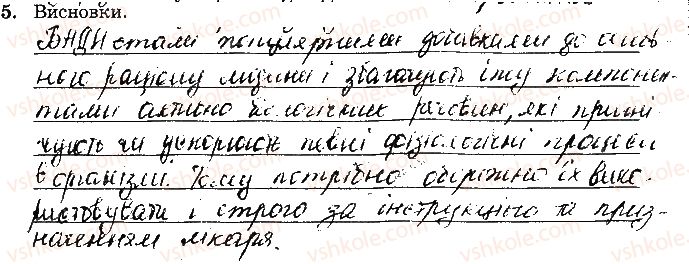 5. Висновки.
БНДН стали популярними добавками до основ
ного раціону людини і збагачують їжу компонен-
тами активно біологічних речовин, які пригні
чують чи ускорюють певні фізіологічні процеси
в організмі. Тому потрібно обережно їх вико-
ристовувати і строго за інструкцією та приз-
наченням лікаря.